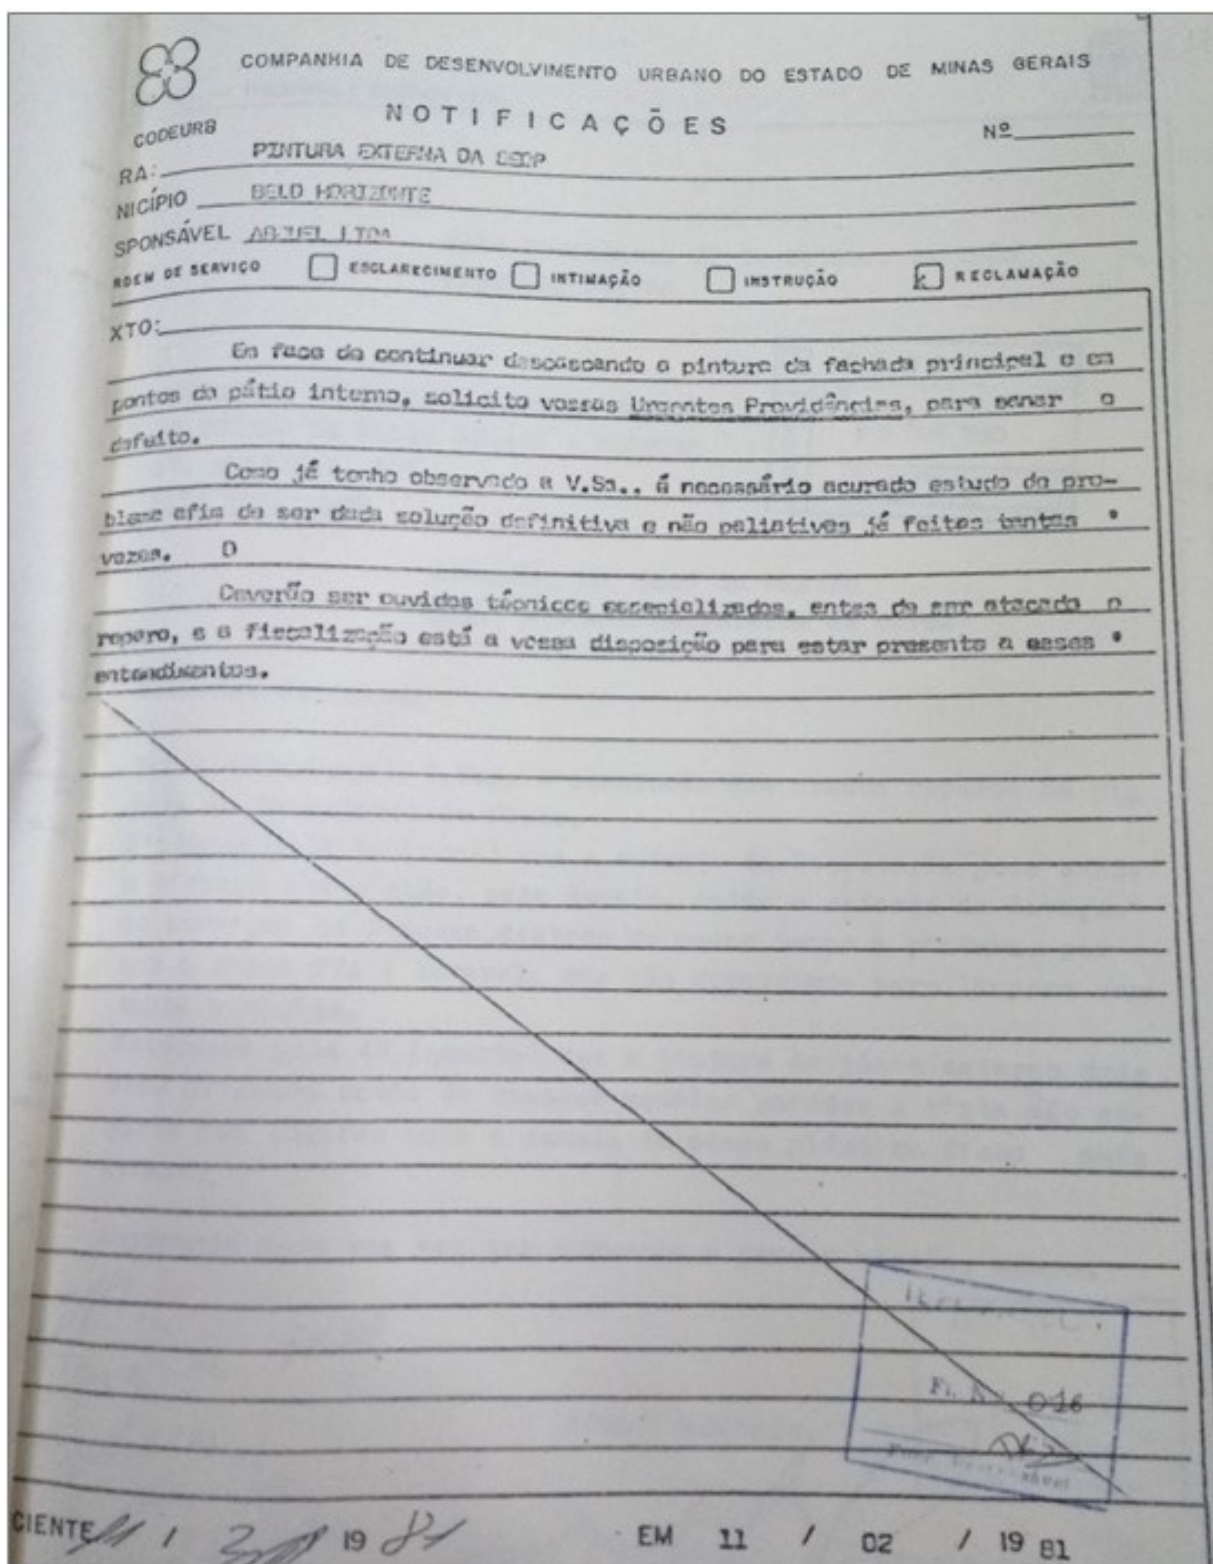 COMPANHIA DE DESENVOLVIMENTO URBANO DO ESTADO DE MINAS GERAIS
NOTIFICAÇÕES
CODEURB
Nº
RA: PINTURA EXTERNA DA
NICÍPIO BELO HORIZONTE
SPONSÁVEL LTDA
RDEM DE SERVIÇO ESCLARECIMENTO INTIMAÇÃO INSTRUÇÃO RECLAMAÇÃO
XTO:
Em face de continuar descascando a pintura da fachada principal e em
pontos do pátio interno, solicito vossas Urgentes Providências, para sanar o
defeito.
Como já tenho observado a V.Sa., é necessário acurado estudo do pro-
blema afim de ser dada solução definitiva e não paliativos já feitos tantas '
vezes. D
Deverão ser ouvidos técnicos especializados, antes de ser atacado o
reparo, e a fiscalização está a vossa disposição para estar presente a esses '
entendimentos.
Fl. Nº 016
CIENTE / 19 81 EM 11 / 02 / 19 81